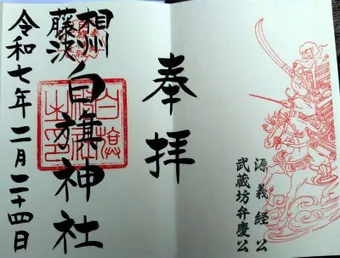 奉拝
相州
藤沢
白旗神社
令和七年二月二十四日
源義経公
武蔵坊弁慶公